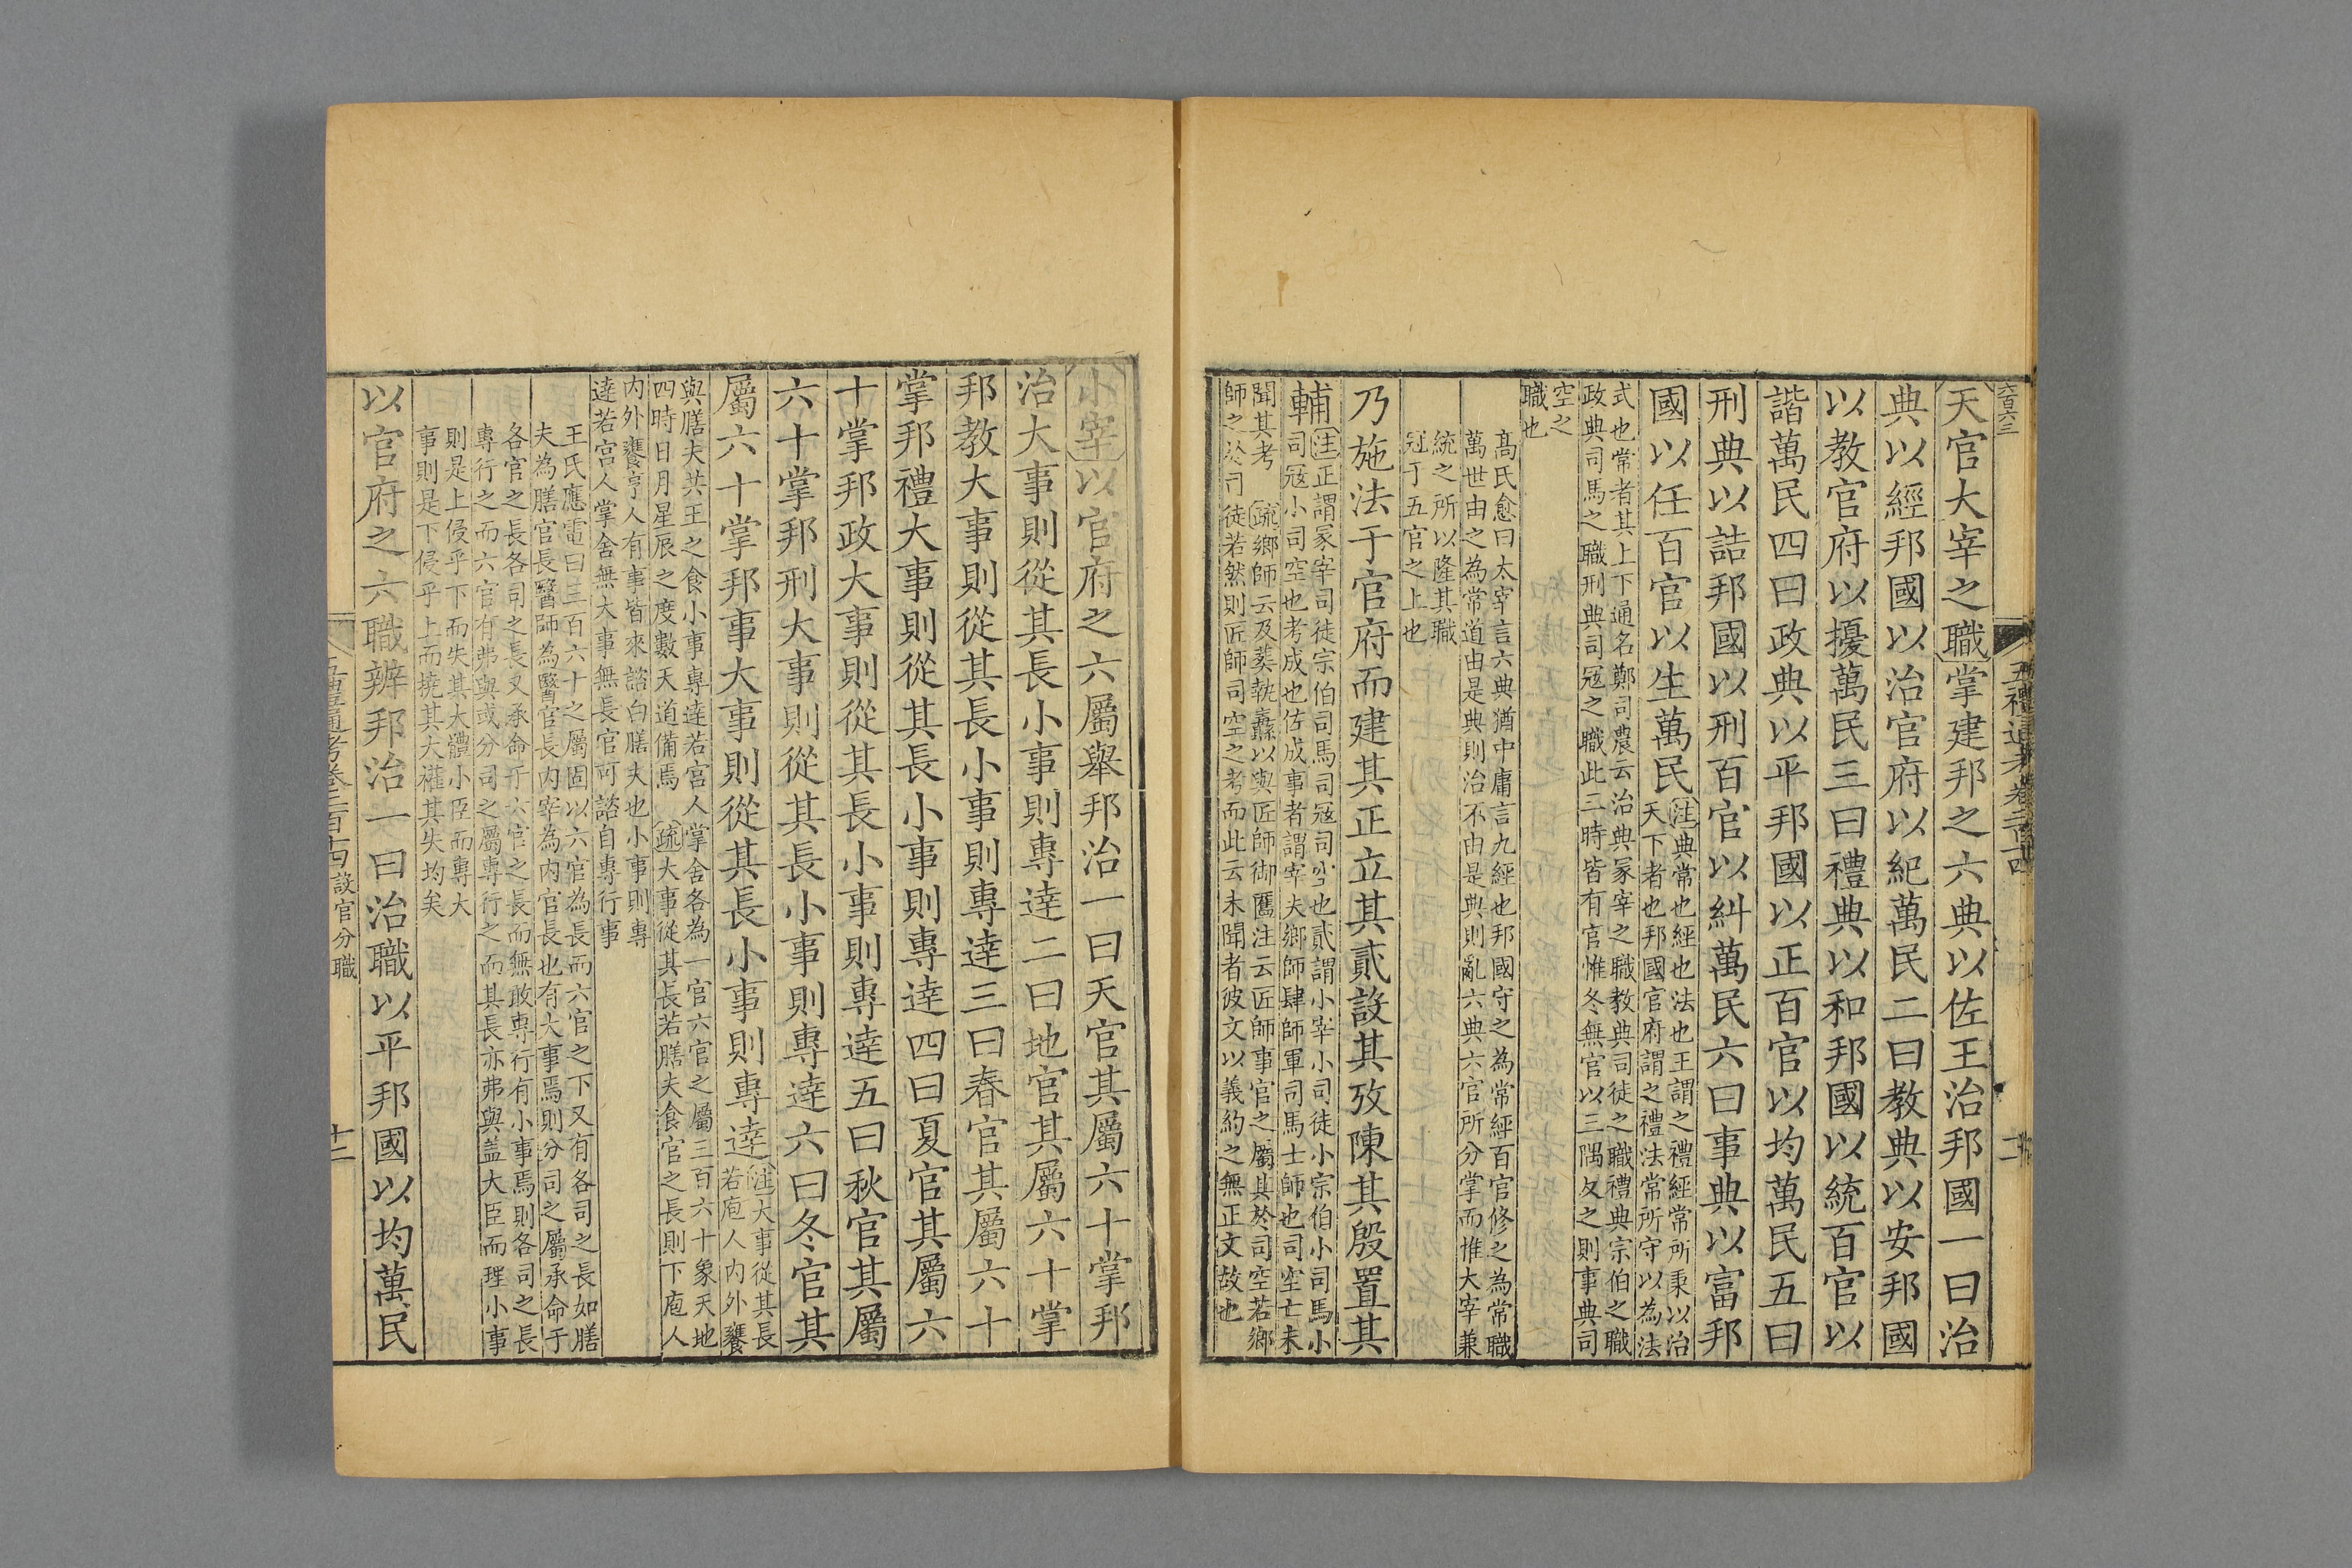 六百六三
五禮通考卷二百十四
天官大宰之職掌建邦之六典以佐王治邦國一曰治
典以經邦國以治官府以紀萬民二曰教典以安邦國
以教官府以擾萬民三曰禮典以和邦國以統百官以
諧萬民四曰政典以平邦國以正百官以均萬民五曰
刑典以詰邦國以刑百官以糾萬民六曰事典以富邦
國以任百官以生萬民
注典常也經也法也王謂之禮經常所秉以治
天下者也邦國官府謂之禮法常所守以為法
式也常者其上下通名鄭司農云治典冢宰之職教典司徒之職禮典宗伯之職
政典司馬之職刑典司寇之職此三時皆有官惟冬無官以三隅反之則事典司
空之
職也
高氏愈曰太宰言六典猶中庸言九經也邦國守之為常經百官修之為常職
萬世由之為常道由是典則治不由是典則亂六典六官所分掌而惟大宰兼
統之所以隆其職
冠于五官之上也
乃施法于官府而建其正立其貳設其攷陳其殷置其
輔
注正謂冢宰司徒宗伯司馬司寇司空也貳謂小宰小司徒小宗伯小司馬小
司寇小司空也考成也佐成事者謂宰夫鄉師肆師軍司馬士師也司空亡未
聞其考 疏鄉師云及葬執纛以與匠師御匶注云匠師事官之屬其於司空若鄉
師之於司徒若然則匠師司空之考而此云未聞者彼文以義約之無正文故也
小宰以官府之六屬舉邦治一曰天官其屬六十掌邦
治大事則從其長小事則專達二曰地官其屬六十掌
邦教大事則從其長小事則專達三曰春官其屬六十
掌邦禮大事則從其長小事則專達四曰夏官其屬六
十掌邦政大事則從其長小事則專達五曰秋官其屬
六十掌邦刑大事則從其長小事則專達六曰冬官其
屬六十掌邦事大事則從其長小事則專達
注大事從其長
若庖人內外饔
與膳夫共王之食小事專達若宮人掌舍各為一官六官之屬三百六十象天地
四時日月星辰之度數天道備焉 疏大事從其長若膳夫食官之長則下庖人
內外饔亨人有事皆來諮白膳夫也小事則專
達若宮人掌舍無大事無長官可諮自專行事
王氏應電曰三百六十之屬固以六官為長而六官之下又有各司之長如膳
夫為膳官長醫師為醫官長內宰為內官長也有大事焉則分司之屬承命于
各官之長各司之長又承命于六官之長而無敢專行有小事焉則各司之長
專行之而六官有弗與或分司之屬專行之而其長亦弗與蓋大臣而理小事
則是上侵乎下而失其大體小臣而專大
事則是下侵乎上而撓其大權其失均矣
以官府之六職辨邦治一曰治職以平邦國以均萬民
五禮通考卷二百十四設官分職
十二